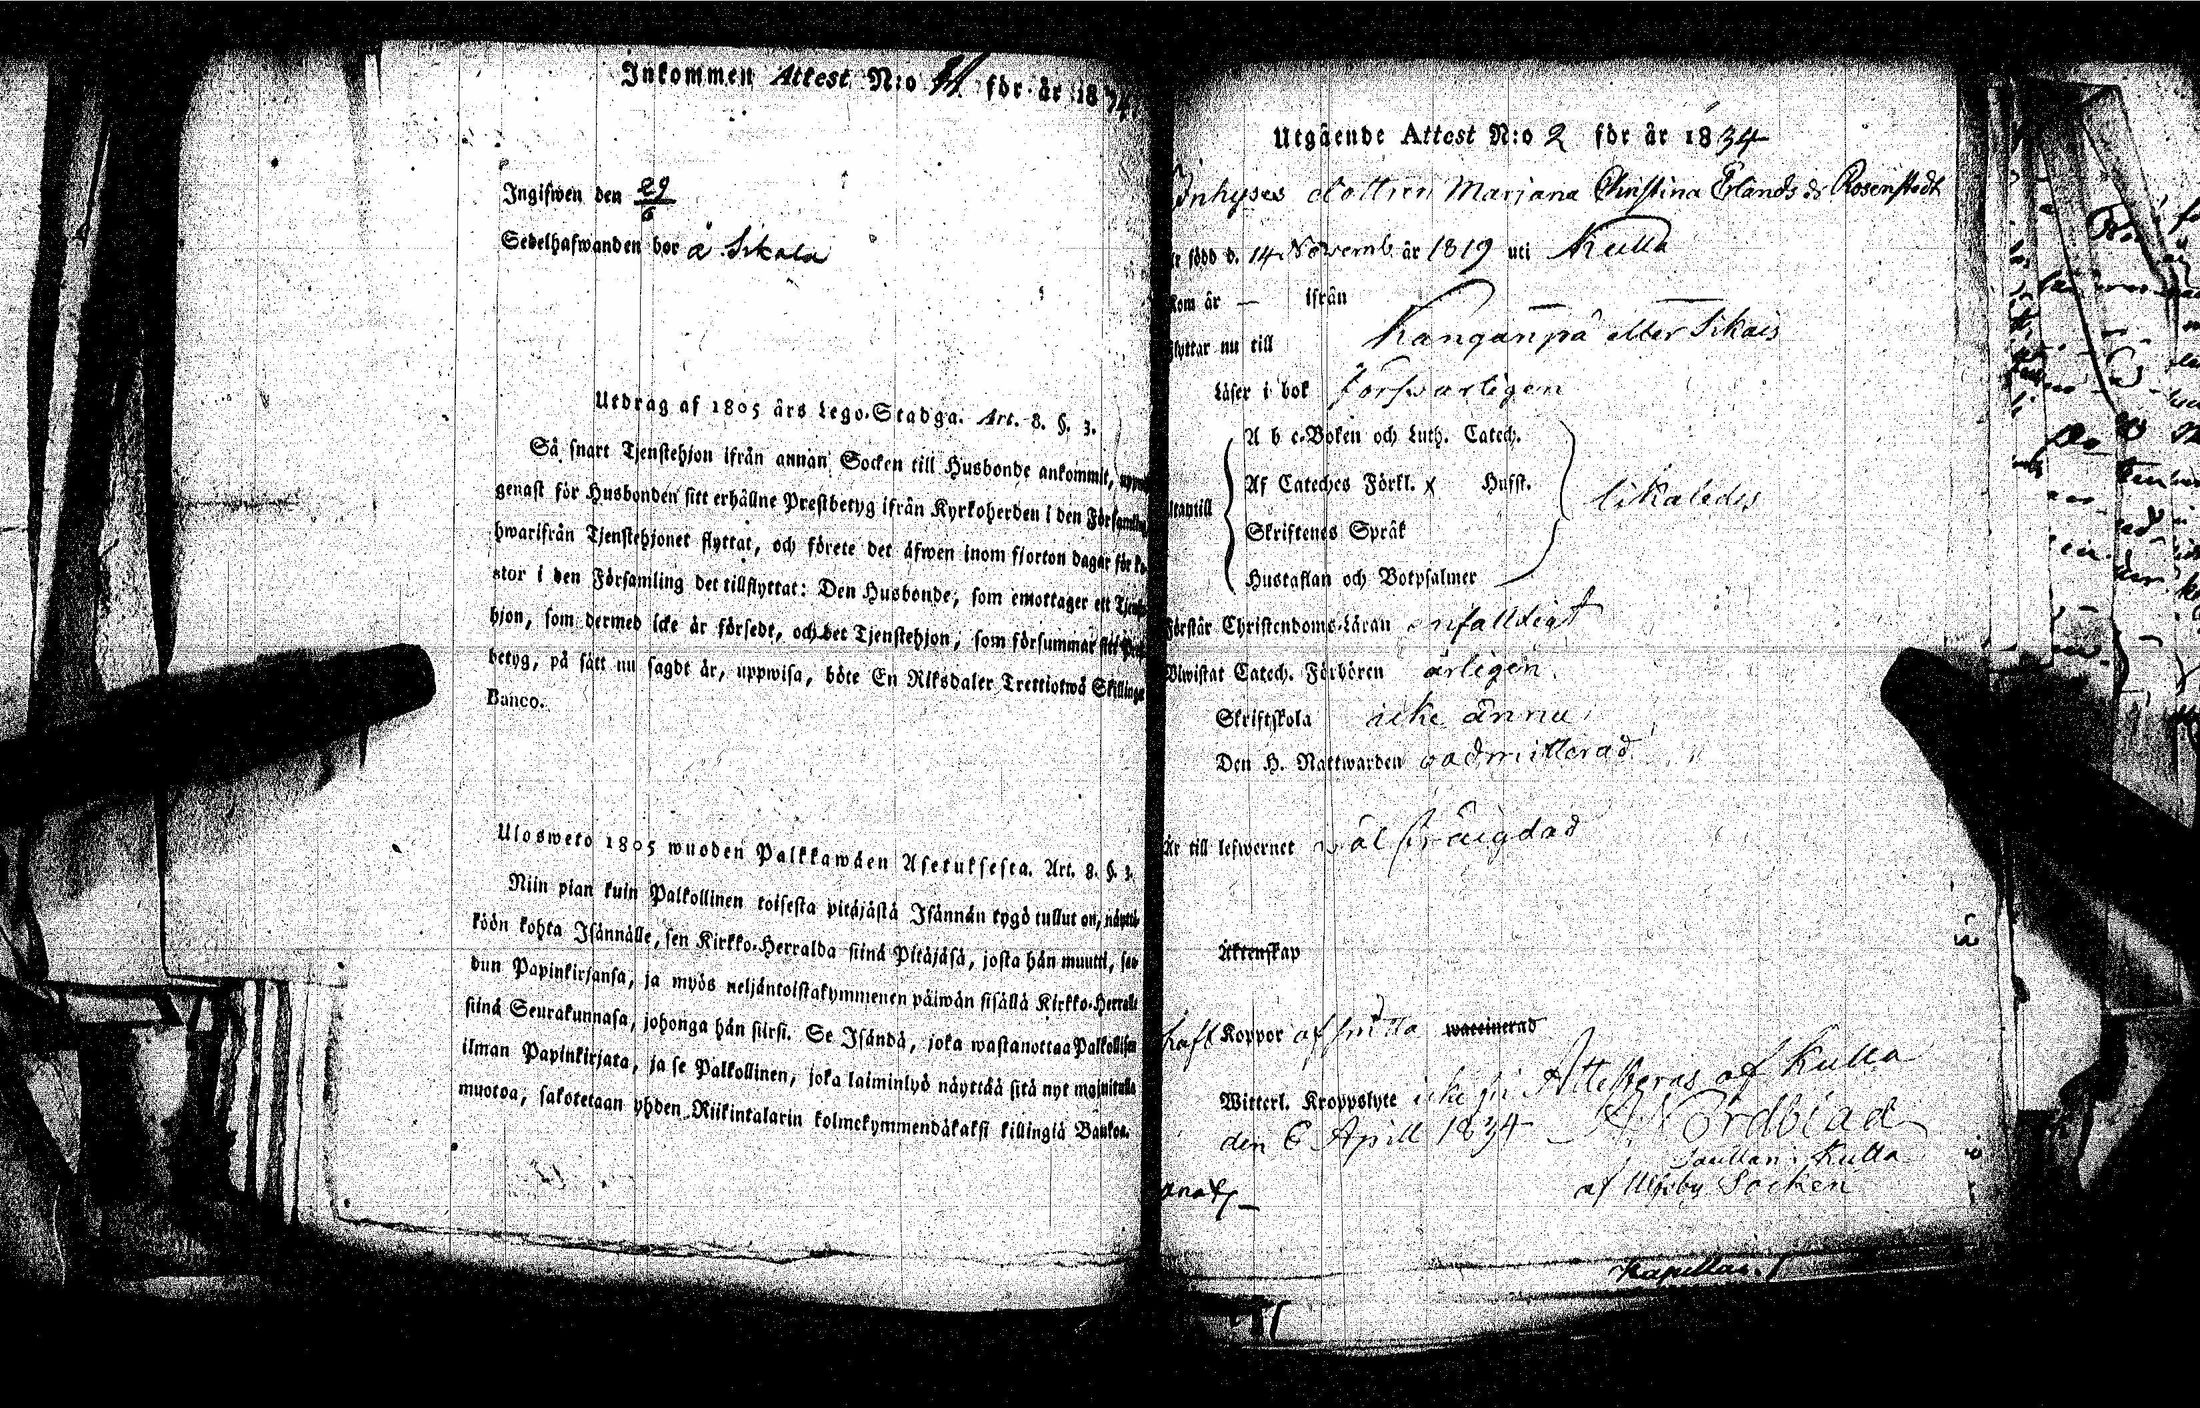 Inkommen Attest N:o för år 1834
Ingifwen den 29/6
Sedelhafwanden bor å Sikala
Utdrag af 1805 års Lego-Stadga. Art. 8. §. 3.
Så snart Tjenstehjon ifrån annan Socken till Husbonde ankommit,
genast för Husbonden sitt erhållne Prestbetyg ifrån Kyrkoherden i den
hwarifrån Tjenstehjonet flyttat, och förete det äfwen inom fjorton dagar för
i den Församling det tillflyttat: Den Husbonde, som emottager ett
hjon, som dermed icke är försedt, och det Tjenstehjon, som försummar sitt
betyg, på sätt nu sagdt är, uppwisa, böte En Riksdaler Trettiotwå Skillingar
Banco.
Ulosweto 1805 wuoden Palkkawäen Asetuksesta. Art. 8. §. 3.
Niin pian kuin Palkollinen toisesta pitäjästä Isännän tygö tullut on, näyttä-
köön kohta Isännälle, sen Kirkko-Herralda siinä Pitäjäsä, josta hän muutti, saa-
dun Papinkirjansa, ja myös neljäntoistakymmenen päiwän sisällä Kirkko-Herralle
siinä Seurakunnasa, johonga hän siirsi. Se Isändä, joka wastanottaa Palkollisen
ilman Papinkirjata, ja se Palkollinen, joka laiminlyö näyttää sitä nyt mainitulla
muotoa, sakotetaan yhden Riikintalarin kolmekymmendäkaksi killingiä Bankos.
Utgående Attest N:o 2 för år 1834
Inhyses dottren Marjana Christina Erlands dr Rosenstedt
är född d. 14 Novemb. år 1819 uti Kulla
Kom år — ifrån
flyttar nu till Kangänpä eller Sikais
Läser i bok försvarligen
A b c-Boken och Luth. Catech.
Af Cateches Förkl. x Hufst.
Utantill likaledes
Skriftenes Språk
Hustaflan och Botpsalmer
Förstår Christendoms-Läran enfalldigt
Biwistat Catech. Förhören årligen
Skriftskola icke ännu
Den H. Nattwarden oadmitterad
Är till lefwernet väl frägdad
Äktenskap
haft Koppor af waccinerad
Witterl. Kroppslyte icke Attesteras af Kulla
den 6 Apill 1834 Nordblad
Kulla
af Ulfsby Socken
Kapellan